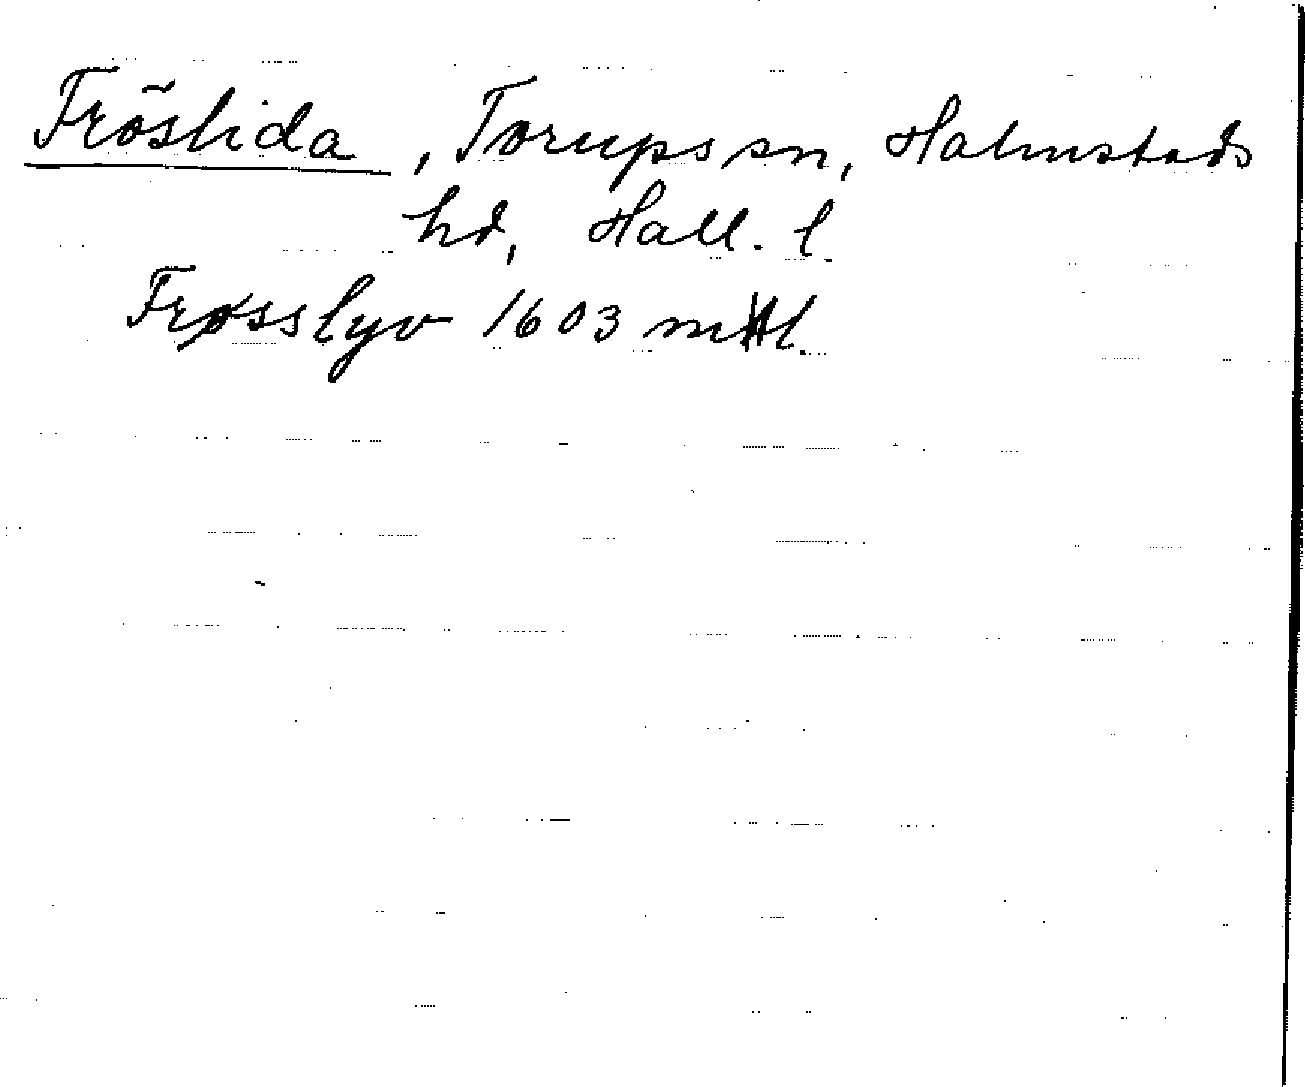 Fröslida, Torups sn, Halmstads
hd, Hall. l
Frøsslyv 1603